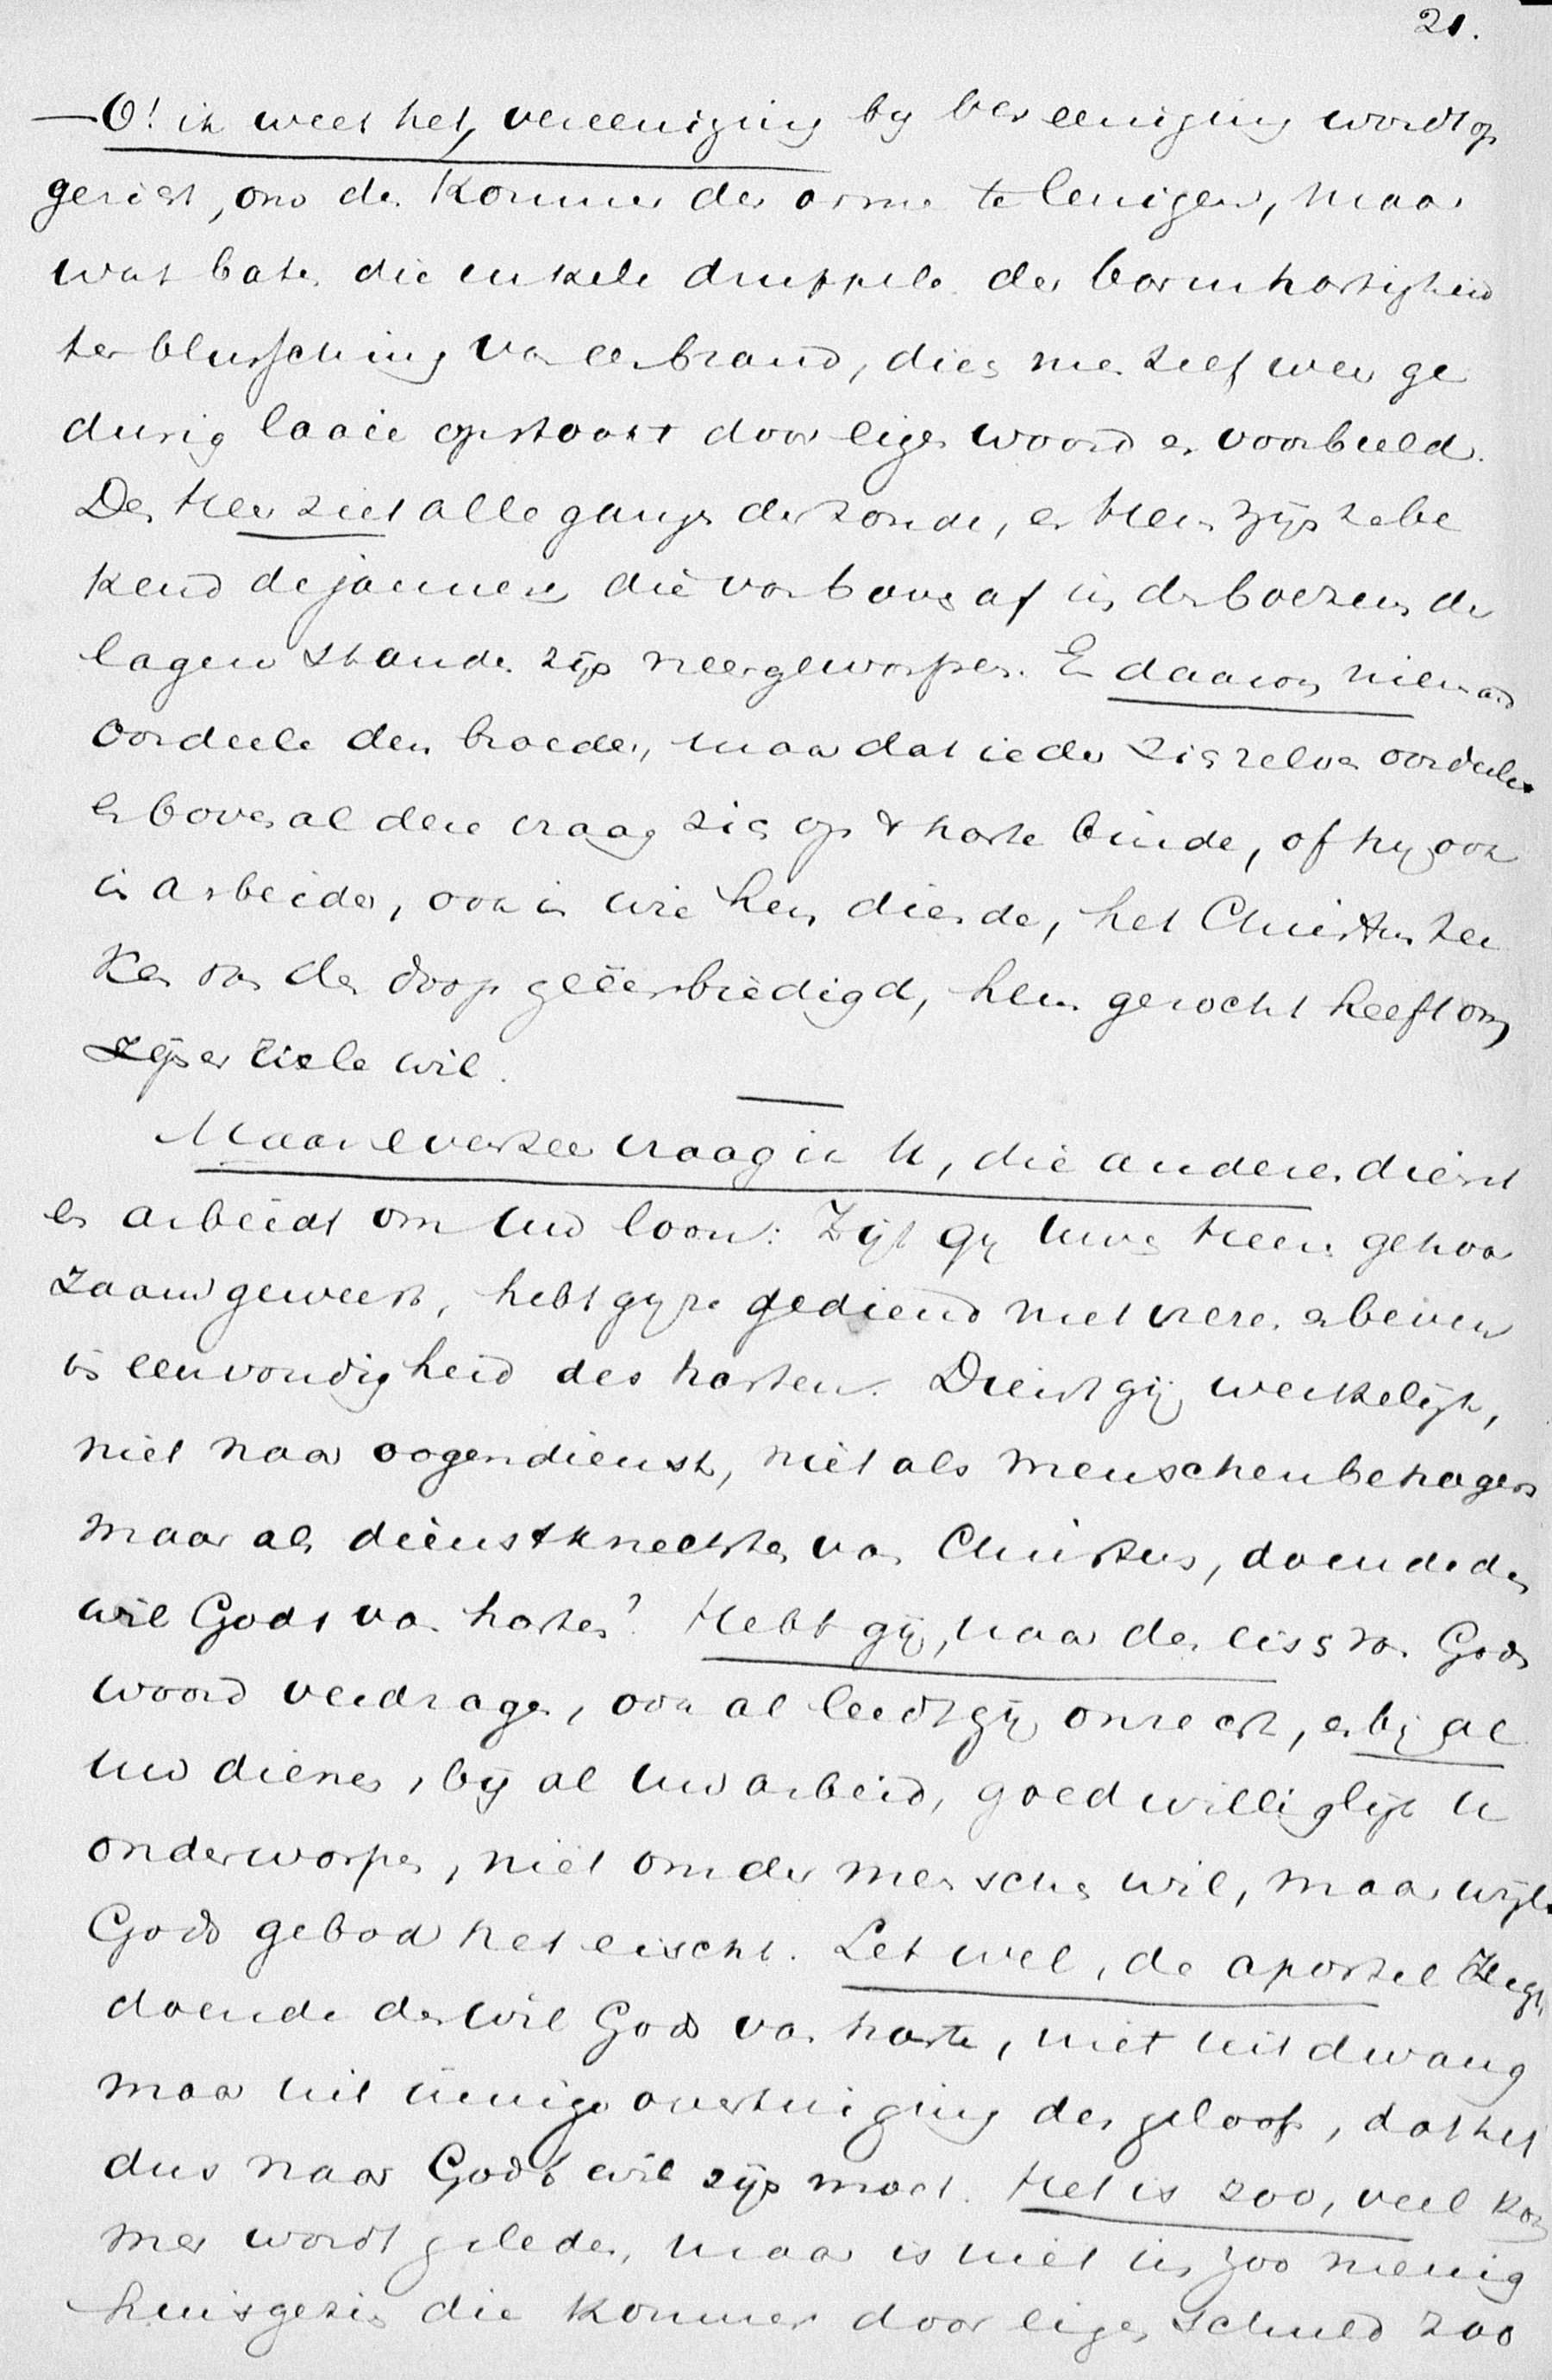 21.
—O! ik weet het, vereeniging by vereeniging wordt op
gerict, om den kommer der arme te lenigen, maar
wat baten die enkele druppels der barmhartigheid
ter blussching van een brand, dien men zelf weer ge
durig laaie opstookt door eigen woord en voorbeeld.
De Heer ziet alle gangen der zonde, en Heer zijn ze be
kend de jammeren die van boven af in den boezem der
lagen standen zijn neergeworpen. En daarom niemand
oordeele den broeder, maar dat ieder zig zelven oordeele
en boven al deze vraag zig op 't harte binde, of hy ook
in arbeider, ook in wie hem diende, het Christen tee
ken van den doop geëerbiedigd, hem gezocht heeft om
zijner ziele wil.
Maar evenzeer vraag ik U, die anderen dient
en arbeidt om Uw loon: Zijt gy Uwe Heeren gehoor
zaam geweest, hebt gy ze gediend met vreze en beven
in eenvoudigheid des harten. Dient gij werkelijk,
niet naar oogendienst, niet als menschenbehagers
maar als dienstknechten van Christus, doende den
wil Gods van harten? Hebt gij, naar den eisch van Gods
woord verdragen, ook al leedt gij onrecht, en bij al
Uw dienen, bij al Uw arbeid, goedwilliglijk U
onderworpen, niet om der menschen wil, maar wijl
Gods gebod het eischt. Let wel, de apostel zegt,
doende den wil Gods van harte, niet uit dwang
maar uit innige overtuiging des geloofs, dat het
dus naar Gods wil zijn moet. Het is zoo, veel kom
mer wordt geleden, maar is niet in zoo menig
huisgezin die kommer door eigen schuld zoo